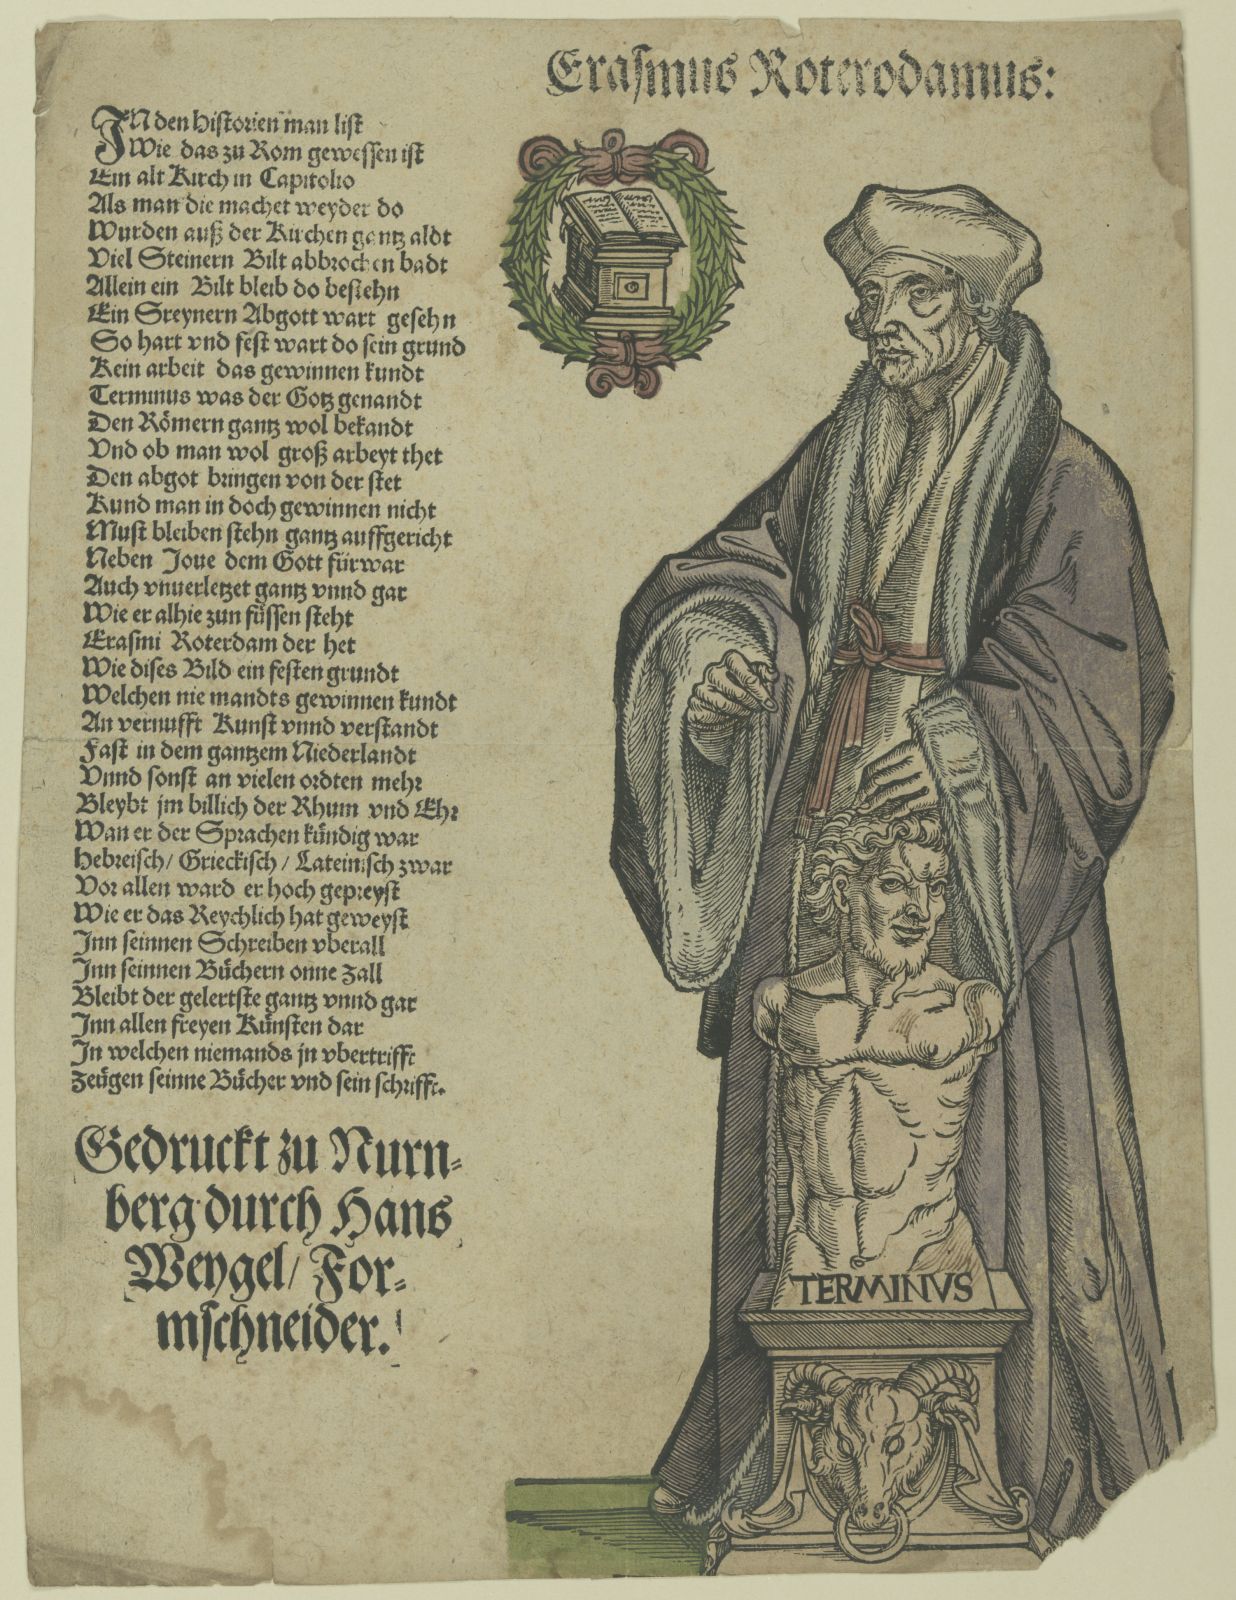 Erasmus Roterodamus:
IN den historien man list
Wie das zu Rom gewessen ist
Ein alt Kirch in Capitolio
Als man die machet weyder do
Wurden auß der Kirchen gantz aldt
Viel Steinern Bilt abbrochen badt
Allein ein Bilt bleib do bestehn
Ein Sreynern Abgott wart gesehn
So hart vnd fest wart do sein grund
Kein arbeit das gewinnen kundt
Terminus was der Gotz genandt
Den Römern gantz wol bekandt
Vnd ob man wol groß arbeyt thet
Den abgot bringen von der stet
Kund man in doch gewinnen nicht
Must bleiben stehn gantz auffgericht
Neben Joue dem Gott fürwar
Auch vnuerletzet gantz vnnd gar
Wie er alhie zun füssen steht
Erasmi Roterdam der het
Wie dises Bild ein festen grundt
Welchen nie mandts gewinnen kundt
An vernufft Kunst vnnd verstandt
Fast in dem gantzem Niederlandt
Vnnd sonst an vielen ordten mehr
Bleybt jm billich der Rhum vnd Ehr
Wan er der Sprachen kündig war
Hebreisch/ Grieckisch/ Lateinisch zwar
Vor allen ward er hoch gepreyst
Wie er das Reychlich hat geweyst
Inn seinnen Schreiben vberall
Inn seinnen Büchern onne zall
Bleibt der gelertste gantz vnnd gar
Inn allen freyen Künsten dar
In welchen niemands jn vbertrifft
Zeügen seinne Bücher vnd sein schrifft.
Gedruckt zu Nurn-
berg durch Hans
Weygel/ For-
mschneider.
TERMINVS